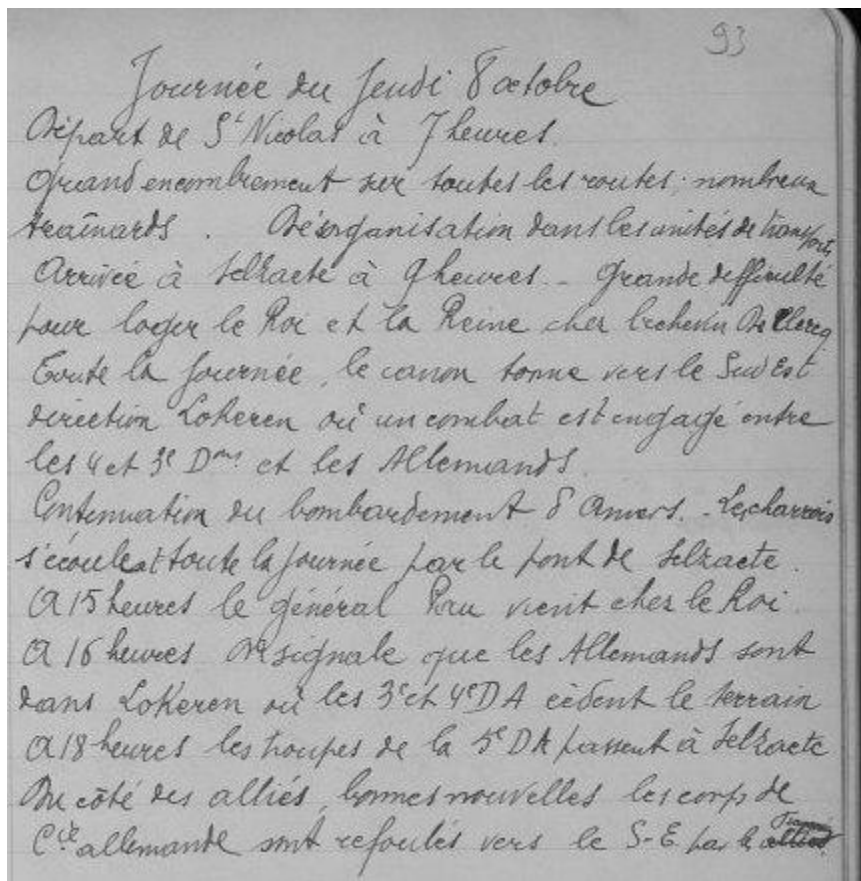 93
Journée du Jeudi 8 octobre
Départ de St Nicolas à 7 heures.
Grand encombrement sur toutes les routes; nombreux
traînards. Désorganisation dans les unités de transport,
Arrivée à Selzaete à 9 heures. - Grande difficulté
pour loger le Roi et la Reine chez l'échevin De Clercq
Toute la journée, le canon tonne vers le Sud Est
direction Lokeren où un combat est engagé entre
les 4 et 3e Dons et les Allemands.
Continuation du bombardement d'Anvers. - Les charrois
s'écoulent toute la journée par le pont de Selzaete.
A 15 heures le général Pau vient chez le Roi.
A 16 heures on signale que les Allemands sont
dans Lokeren où les 3e et 4e DA cèdent le terrain
A 18 heures les troupes de la 5e DA passent à Selzaete
Du côté des alliés, bonnes nouvelles les corps de
Cie allemande sont refoulés vers le S-E par les